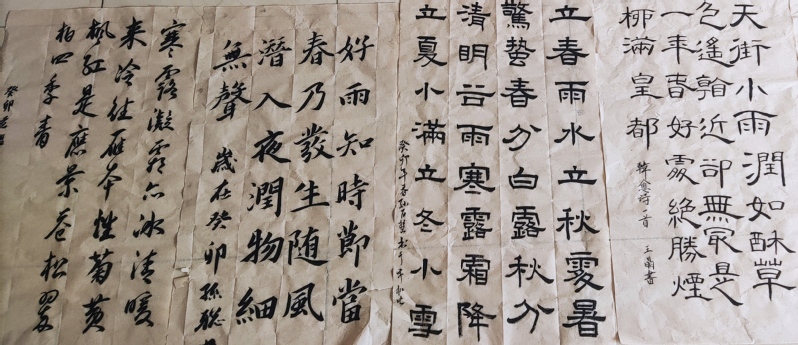 天街小雨潤如酥草
色遙翰近卻無最是
一年春好處絕勝煙
柳滿皇都
韓愈詩一首
王萌書
立春雨水立秋處暑
驚蟄春分白露秋分
清明谷雨寒露霜降
立夏小滿立冬小雪
癸卯年春
好雨知時節當
春乃發生随風
潛入夜潤物細
無聲
歲在癸卯孫聡
寒露凝霜冰清暖
来冷往雁本性菊黄
楓红是景苍松翠
柏四季青
癸卯